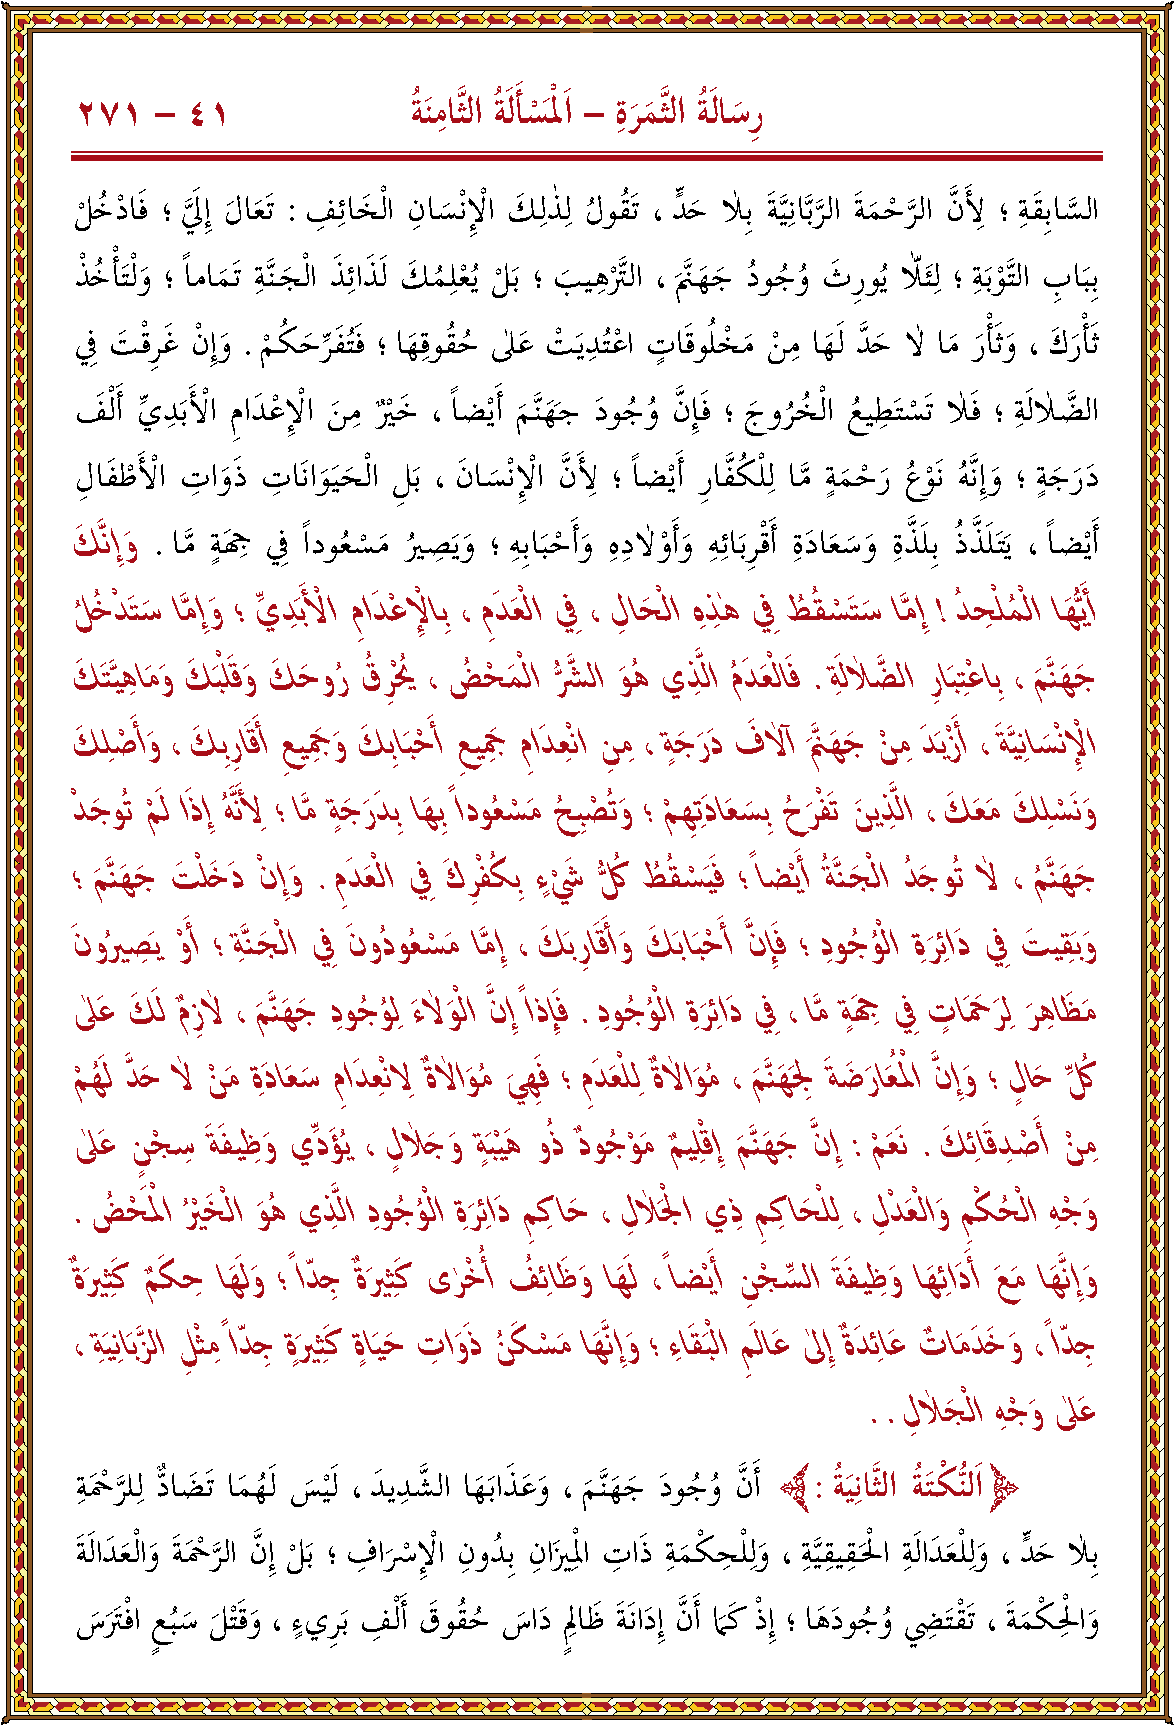 رِسَالَةُ الثَّمَرَةِ – اَلْمَسْأَلَةُ الثَّامِنَةُ ٤١ – ٢٧١
السَّابِقَةِ ؛ لِأَنَّ الرَّحْمَةَ الرَّبَّانِيَّةَ بِلَا حَدٍّ ، تَقُولُ لِذٰلِكَ الْإِنْسَانِ الْخَائِفِ : تَعَالَ إِلَيَّ ؛ فَادْخُلْ
بِبَابِ التَّوْبَةِ ؛ لِئَلَّا يُورِثَ وُجُودُ جَهَنَّمَ ، التَّرْهِيبَ ؛ بَلْ يُعْلِمُكَ لَذَائِذَ الْجَنَّةِ تَمَاماً ؛ وَلْتَأْخُذْ
ثَأْرَكَ ، وَثَأْرَ مَا لَا حَدَّ لَهَا مِنْ مَخْلُوقَاتٍ اعْتُدِيَتْ عَلٰى حُقُوقِهَا ؛ فَتُفَرِّحَكُمْ . وَإِنْ غَرِقْتَ فِي
الضَّلَالَةِ ؛ فَلَا تَسْتَطِيعُ الْخُرُوجَ ؛ فَإِنَّ وُجُودَ جَهَنَّمَ أَيْضاً ، خَيْرٌ مِنَ الْإِعْدَامِ الْأَبَدِيِّ أَلْفَ
دَرَجَةٍ ؛ وَإِنَّهُ نَوْعُ رَحْمَةٍ مَّا لِلْكُفَّارِ أَيْضاً ؛ لِأَنَّ الْإِنْسَانَ ، بَلِ الْحَيَوَانَاتِ ذَوَاتِ الْأَطْفَالِ
أَيْضاً ، يَتَلَذَّذُ بِلَذَّةِ وَسَعَادَةِ أَقْرِبَائِهِ وَأَوْلَادِهِ وَأَحْبَابِهِ ؛ وَيَصِيرُ مَسْعُوداً فِي جِهَةٍ مَّا . وَإِنَّكَ
أَيُّهَا الْمُلْحِدُ ! إِمَّا سَتَسْقُطُ فِي هٰذِهِ الْحَالِ ، فِي الْعَدَمِ ، بِالْإِعْدَامِ الْأَبَدِيِّ ؛ وَإِمَّا سَتَدْخُلُ
جَهَنَّمَ ، بِاعْتِبَارِ الضَّلَالَةِ . فَالْعَدَمُ الَّذِي هُوَ الشَّرُّ الْمَحْضُ ، يُحْرِقُ رُوحَكَ وَقَلْبَكَ وَمَاهِيَّتَكَ
الْإِنْسَانِيَّةَ ، أَزْيَدَ مِنْ جَهَنَّمَ آلَافَ دَرَجَةٍ ، مِنِ انْعِدَامِ جَمِيعِ أَحْبَابِكَ وَجَمِيعِ أَقَارِبِكَ ، وَأَصْلِكَ
وَنَسْلِكَ مَعَكَ ، الَّذِينَ تَفْرَحُ بِسَعَادَتِهِمْ ؛ وَتُصْبِحُ مَسْعُوداً بِهَا بِدَرَجَةٍ مَّا ؛ لِأَنَّهُ إِذَا لَمْ تُوجَدْ
جَهَنَّمُ ، لَا تُوجَدُ الْجَنَّةُ أَيْضاً ؛ فَيَسْقُطُ كُلُّ شَيْءٍ بِكُفْرِكَ فِي الْعَدَمِ . وَإِنْ دَخَلْتَ جَهَنَّمَ ؛
وَبَقِيتَ فِي دَائِرَةِ الْوُجُودِ ؛ فَإِنَّ أَحْبَابَكَ وَأَقَارِبَكَ ، إِمَّا مَسْعُودُونَ فِي الْجَنَّةِ ؛ أَوْ يَصِيرُونَ
مَظَاهِرَ لِرَحَمَاتٍ فِي جِهَةٍ مَّا ، فِي دَائِرَةِ الْوُجُودِ . فَإِذاً إِنَّ الْوَلَاءَ لِوُجُودِ جَهَنَّمَ ، لَازِمٌ لَكَ عَلٰى
كُلِّ حَالٍ ؛ وَإِنَّ الْمُعَارَضَةَ لِجَهَنَّمَ ، مُوَالَاةٌ لِلْعَدَمِ ؛ فَهِيَ مُوَالَاةٌ لِانْعِدَامِ سَعَادَةِ مَنْ لَا حَدَّ لَهُمْ
مِنْ أَصْدِقَائِكَ . نَعَمْ : إِنَّ جَهَنَّمَ إِقْلِيمٌ مَوْجُودٌ ذُو هَيْبَةٍ وَجَلَالٍ ، يُؤَدِّي وَظِيفَةَ سِجْنٍ عَلٰى
وَجْهِ الْحُكْمِ وَالْعَدْلِ ، لِلْحَاكِمِ ذِي الْجَلَالِ ، حَاكِمِ دَائِرَةِ الْوُجُودِ الَّذِي هُوَ الْخَيْرُ الْمَحْضُ .
وَإِنَّهَا مَعَ أَدَائِهَا وَظِيفَةَ السِّجْنِ أَيْضاً ، لَهَا وَظَائِفُ أُخْرٰى كَثِيرَةٌ جِدّاً ؛ وَلَهَا حِكَمٌ كَثِيرَةٌ
جِدّاً ، وَخَدَمَاتٌ عَائِدَةٌ إِلٰى عَالَمِ الْبَقَاءِ ؛ وَإِنَّهَا مَسْكَنُ ذَوَاتِ حَيَاةٍ كَثِيرَةٍ جِدّاً مِثْلِ الزَّبَانِيَةِ ،
عَلٰى وَجْهِ الْجَلَالِ . .
﴿ اَلنُّكْتَةُ الثَّانِيَةُ : ﴾ أَنَّ وُجُودَ جَهَنَّمَ ، وَعَذَابَهَا الشَّدِيدَ ، لَيْسَ لَهُمَا تَضَادٌّ لِلرَّحْمَةِ
بِلَا حَدٍّ ، وَلِلْعَدَالَةِ الْحَقِيقِيَّةِ ، وَلِلْحِكْمَةِ ذَاتِ الْمِيزَانِ بِدُونِ الْإِسْرَافِ ؛ بَلْ إِنَّ الرَّحْمَةَ وَالْعَدَالَةَ
وَالْحِكْمَةَ ، تَقْتَضِي وُجُودَهَا ؛ إِذْ كَمَا أَنَّ إِدَانَةَ ظَالِمٍ دَاسَ حُقُوقَ أَلْفِ بَرِيءٍ ، وَقَتْلَ سَبُعٍ افْتَرَسَ